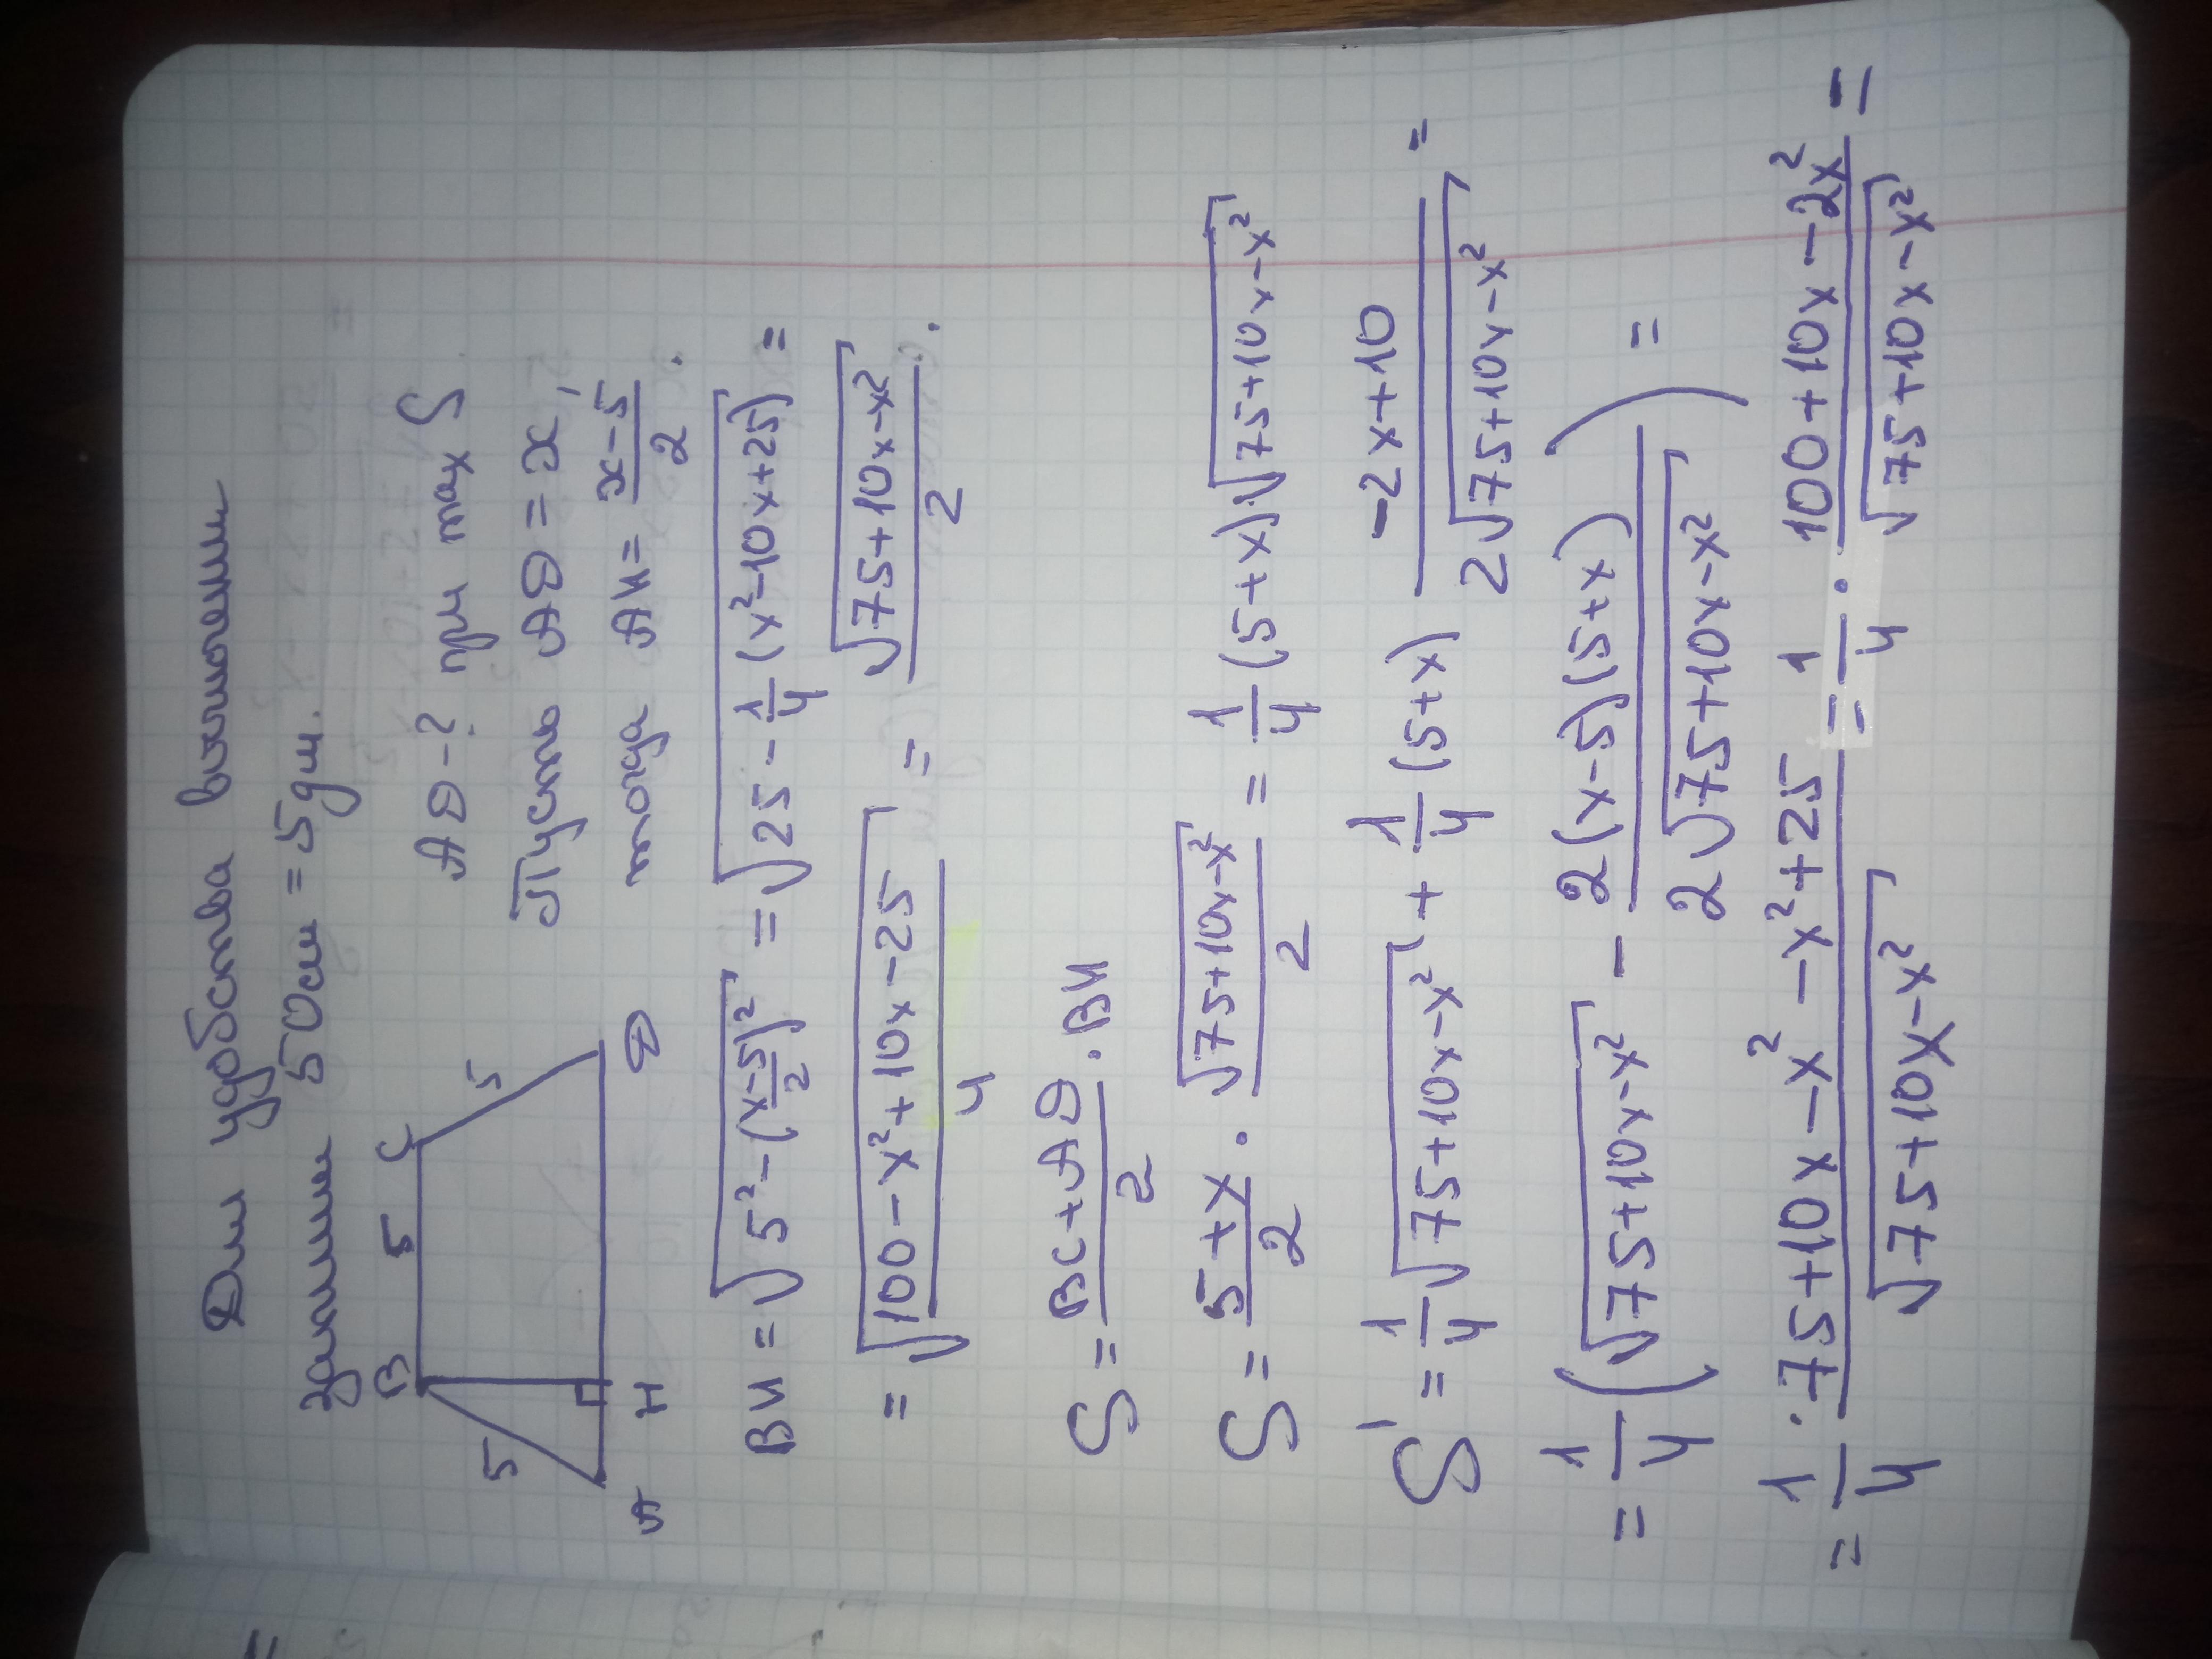 Для удобства вычислений
запишем 50см = 5дм.
B 5 C
5 5
A H D
AD - ? при max S
Пусть AD = x,
тогда AH = \frac{x-5}{2}.
BH = \sqrt{5^2 - (\frac{x-5}{2})^2} = \sqrt{25 - \frac{1}{4}(x^2 - 10x + 25)} =
= \sqrt{\frac{100 - x^2 + 10x - 25}{4}} = \frac{\sqrt{75 + 10x - x^2}}{2}.
S = \frac{BC + AD}{2} · BH
S = \frac{5 + x}{2} · \frac{\sqrt{75 + 10x - x^2}}{2} = \frac{1}{4}(5 + x)\sqrt{75 + 10x - x^2}
S' = \frac{1}{4}\sqrt{75 + 10x - x^2} + \frac{1}{4}(5 + x) \frac{-2x + 10}{2\sqrt{75 + 10x - x^2}} =
= \frac{1}{4}(\sqrt{75 + 10x - x^2} - \frac{2(x - 5)(5 + x)}{2\sqrt{75 + 10x - x^2}}) =
= \frac{1}{4} · \frac{75 + 10x - x^2 - x^2 + 25}{\sqrt{75 + 10x - x^2}} = \frac{1}{4} · \frac{100 + 10x - 2x^2}{\sqrt{75 + 10x - x^2}} =